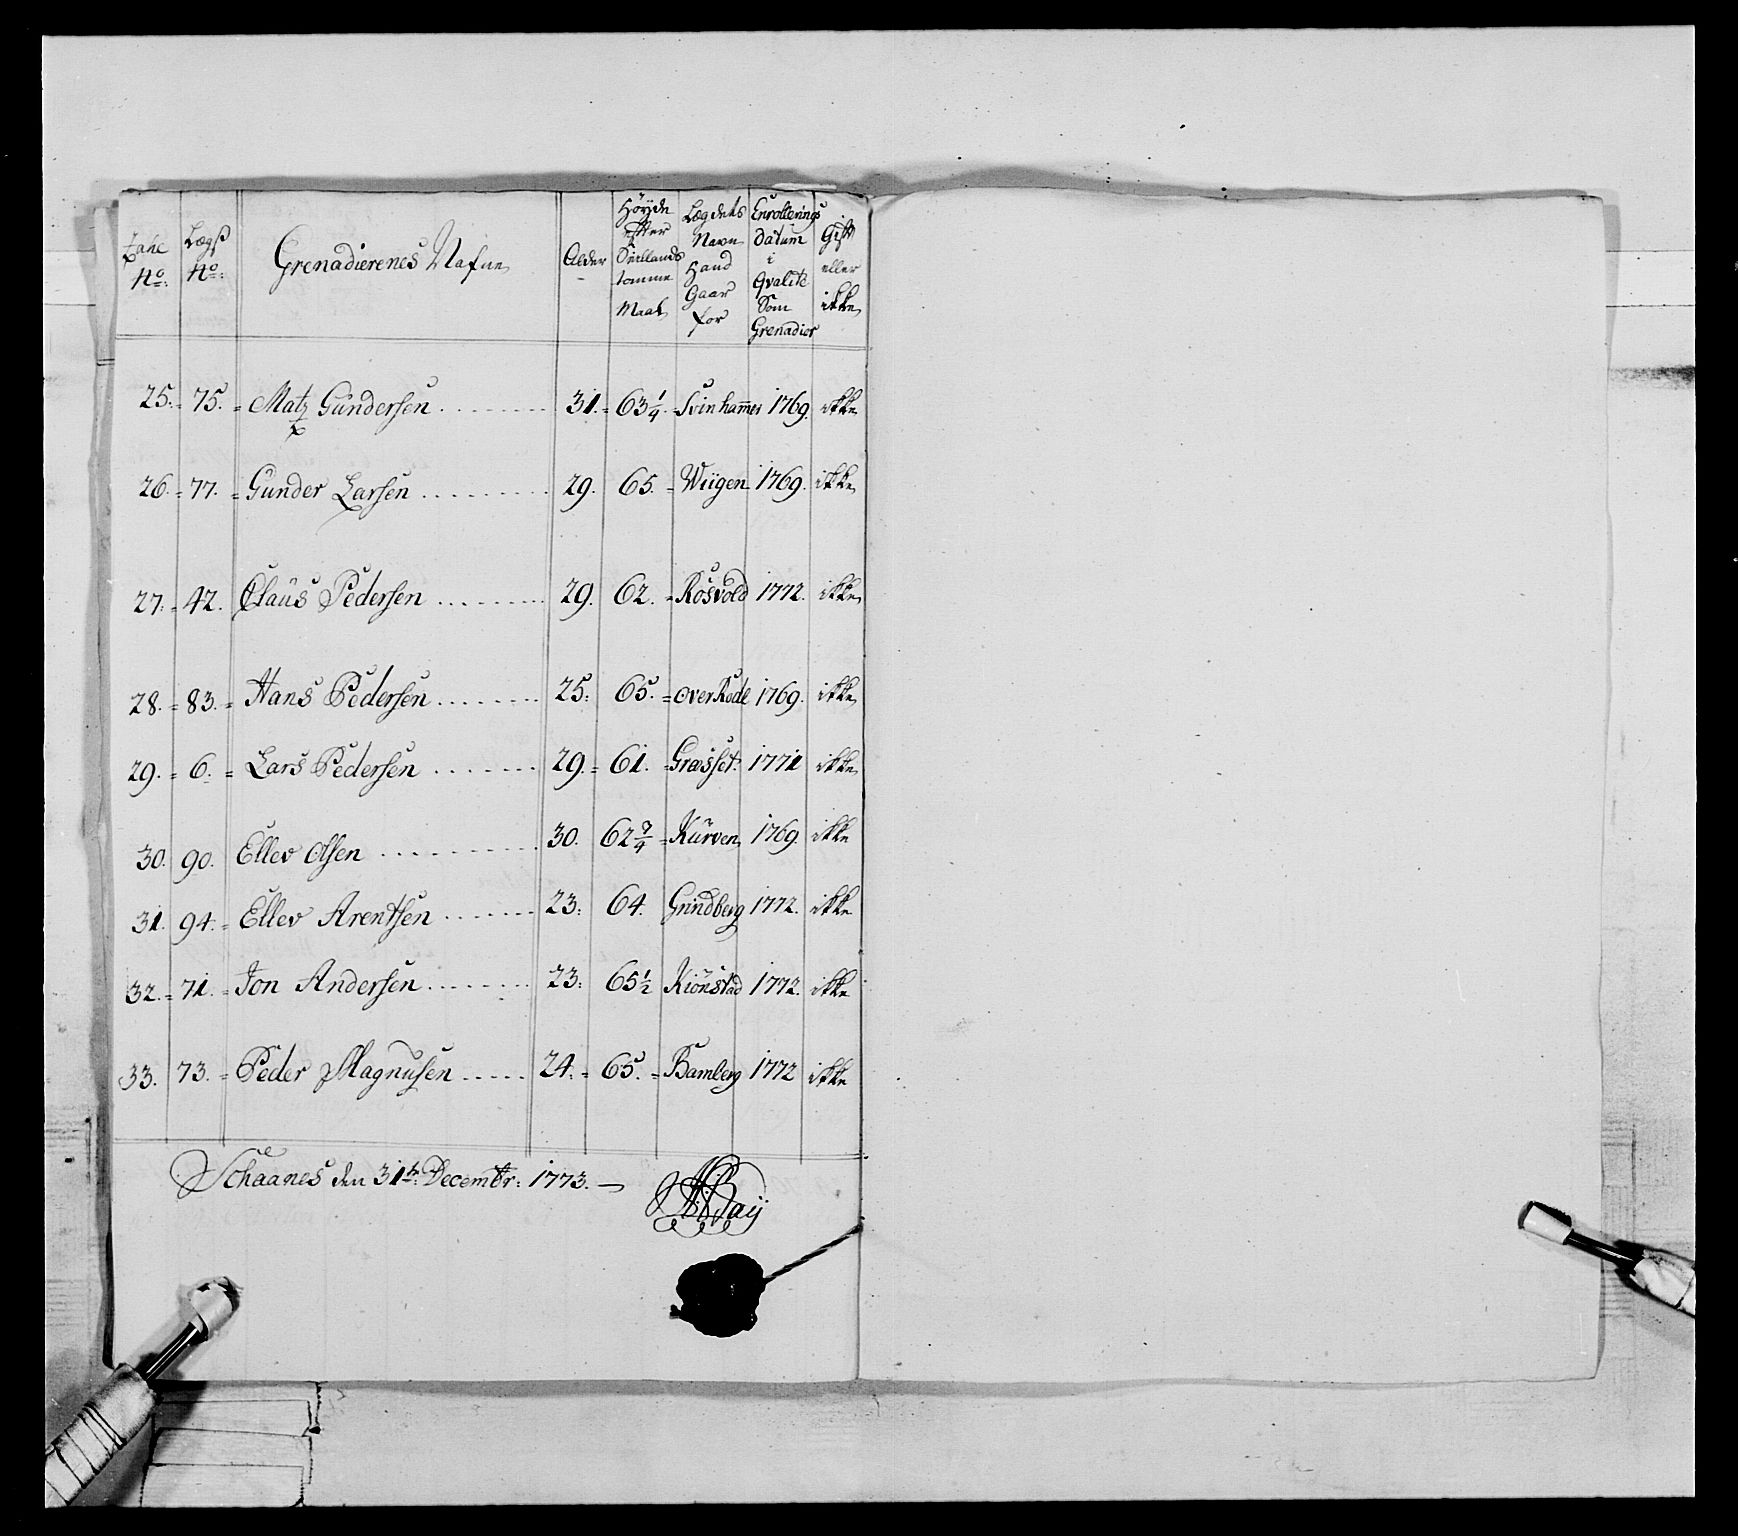 Tahl No: | Lægs No: | Grenadierenes Nafne | Alder | Høyde efter Siællands tomme Maal | Lægdets Navn Hand Gaar for | Enrollerings Datum i Qvalite Som Grenadier | Gift eller ikke
25. 75. Matz Gundersen 31. 63 1/4 Svinhammer 1769. ikke
26. 77. Gunder Larsen 29. 65. Wiigen 1769. ikke
27. 42. Claus Pedersen 29. 62. Rosvold 1772. ikke
28. 83. Hans Pedersen 25: 65. OverRode 1769. ikke
29. 6. Lars Pedersen 29. 61. Græsset. 1771 ikke
30. 90. Ellev Olsen 30. 62 3/4 Kurven 1769. ikke
31. 94. Ellev Arentsen 23: 64. Grindberg 1772. ikke
32. 71. Jon Andersen 23: 65 1/2 Kiönstad 1772. ikke
33. 73. Peder Magnusen 24. 65. Bamberg 1772 ikke
Schaanes den 31te Decembr: 1773.